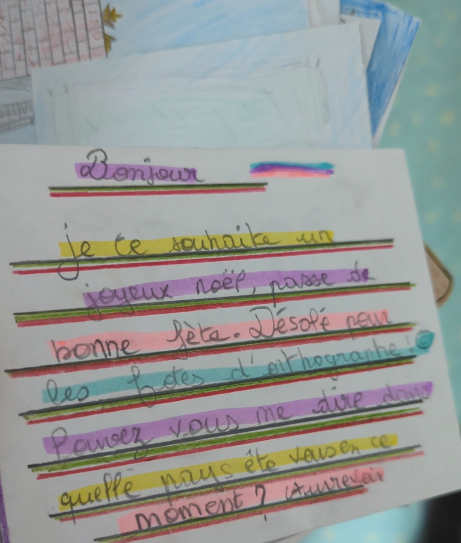 Bonjour
je te souhaite un
joyeux noël, passe de
bonne fête. Désolé pour
les fotes d'orthographe!
Pouvez vous me dire dans
quelle pays ête vous en ce
moment? (Aurevoir